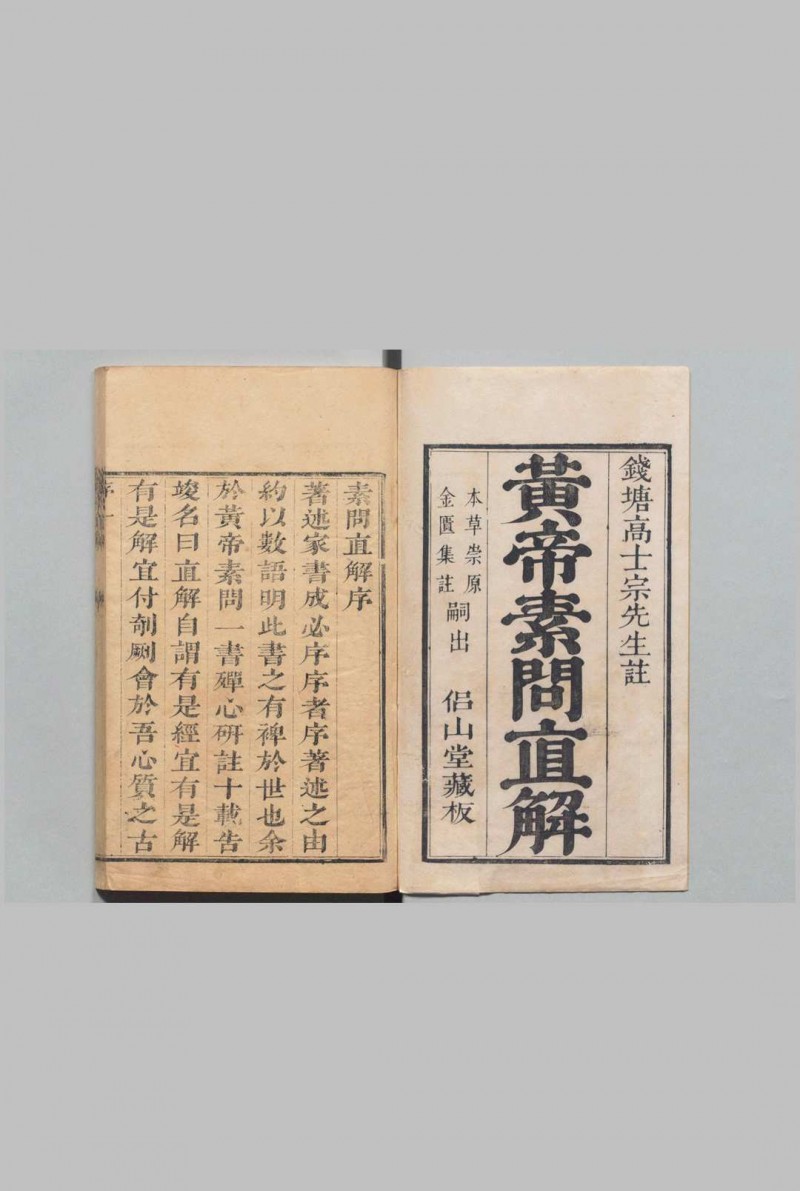 錢塘高士宗先生註
黃帝素問直解
本草崇原
金匱集註
嗣出
侶山堂藏板
素問直解序
著述家書成必序序者序著述之由
約以數語明此書之有裨於世也余
於黃帝素問一書殫心硏註十載告
竣名曰直解自謂有是經宜有是解
有是解宜付剞劂會於吾心質之古
序一